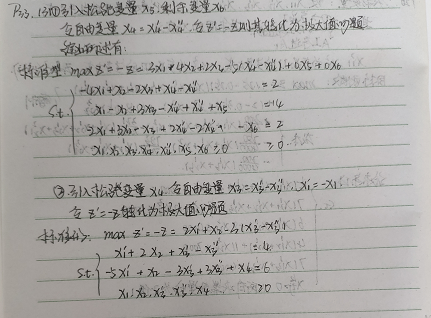 P53. (3)①引入松弛变量x5,剩余变量x6
令自由变量 x4=x4'-x4'',令z'=-z则其转化为极大值问题
标准型 max z'=-z=3x1+4x2+2x3-5(x4'-x4'')+0x5+0x6
-4x1+x2-2x3+x4'-x4''=2
s.t. x1-x2+3x3-x4'+x4''+x5=14
-2x1+3x2-x3+2x4'-2x4''-x6=2
x1,x2,x3,x4',x4'',x5,x6≥0
②引入松弛变量x4,令自由变量x3=x3'-x3'',x1'=-x1
令z'=-z转化为极大值问题
标准化: max z'=-z=2x1'+x2-3(x3'-x3'')
x1'+2x2+x3'-x3''=4
s.t. -3x1'+x2-3x3'+3x3''+x4=6
x1',x2,x3',x3'',x4≥0